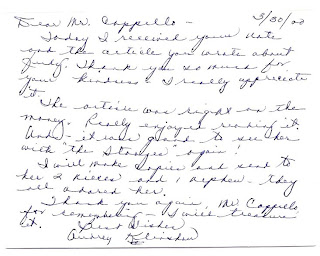 Dear Mr. Cappello - 3/30/00
Today I received your note
and the article you wrote about
Judy. Thank you so much for
your kindness - I really appreciate
it.
The article was right on the
money. Really enjoyed reading it.
And - it was good to see her
with "the Stooges" again!
I will make copies and send to
her 2 nieces and 1 nephew - they
all adored her.
Thank you again, Mr. Cappello
for remembering - I will treasure
it.
Best Wishes
Audrey